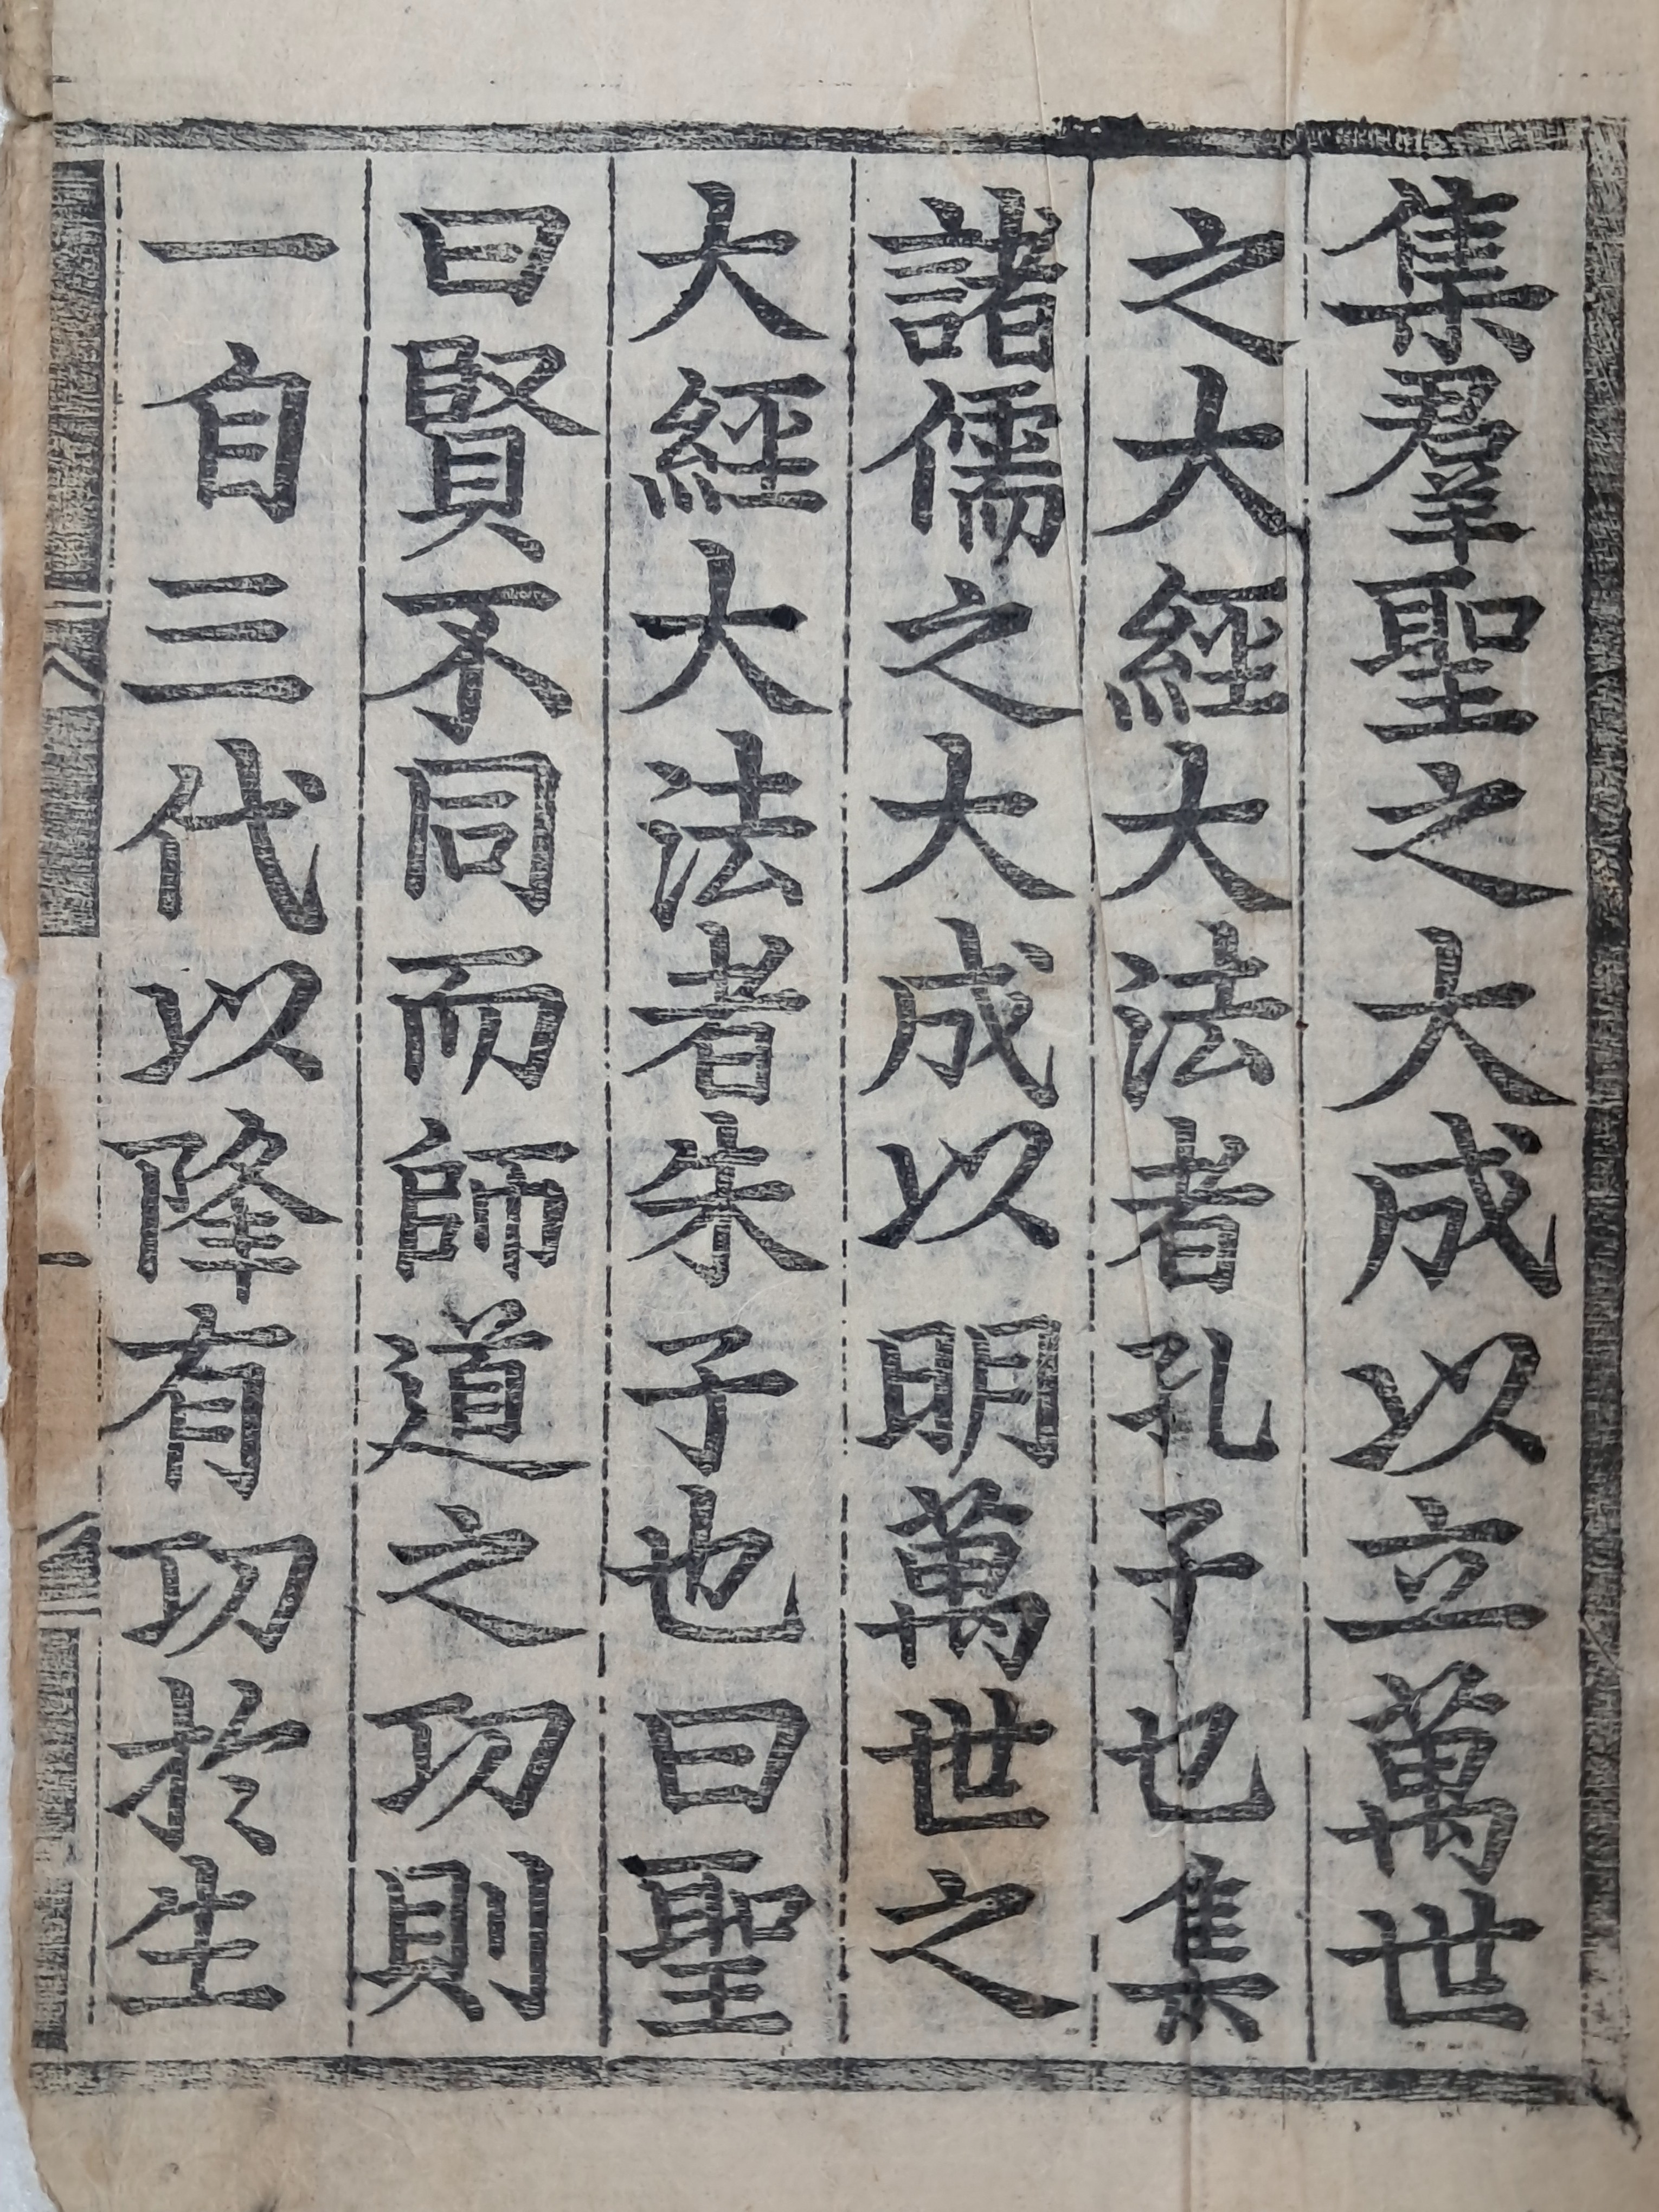 集羣聖之大成以立萬世
之大經大法者孔子也集
諸儒之大成以明萬世之
大經大法者朱子也曰聖
曰賢不同而師道之功則
一自三代以降有功於生